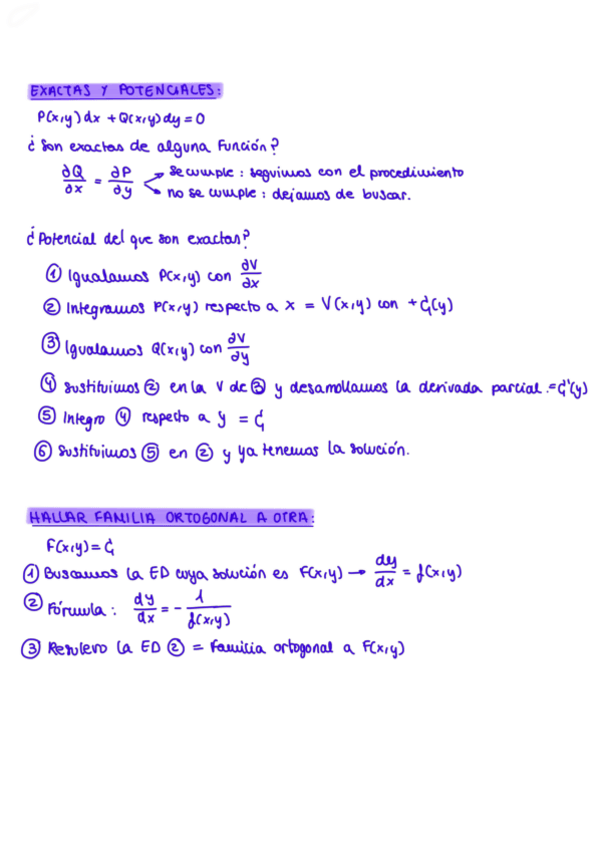 EXACTAS Y POTENCIALES:
P(x,y) dx + Q(x,y) dy = 0
¿ Son exactas de alguna función?
∂Q/∂x = ∂P/∂y → se cumple : seguimos con el procedimiento
→ no se cumple : dejamos de buscar.
¿Potencial del que son exactas?
① Igualamos P(x,y) con ∂V/∂x
② Integramos P(x,y) respecto a x = V(x,y) con + C₁(y)
③ Igualamos Q(x,y) con ∂V/∂y
④ Sustituimos ② en la V de ③ y desarrollamos la derivada parcial .= C₁'(y)
⑤ Integro ④ respecto a y = C₁
⑥ Sustituimos ⑤ en ② y ya tenemos la solución.
HALLAR FAMILIA ORTOGONAL A OTRA:
F(x,y) = C₁
① Buscamos la ED cuya solución es F(x,y) → dy/dx = f(x,y)
② Fórmula : dy/dx = - 1/f(x,y)
③ Resuelvo la ED ② = Familia ortogonal a F(x,y)